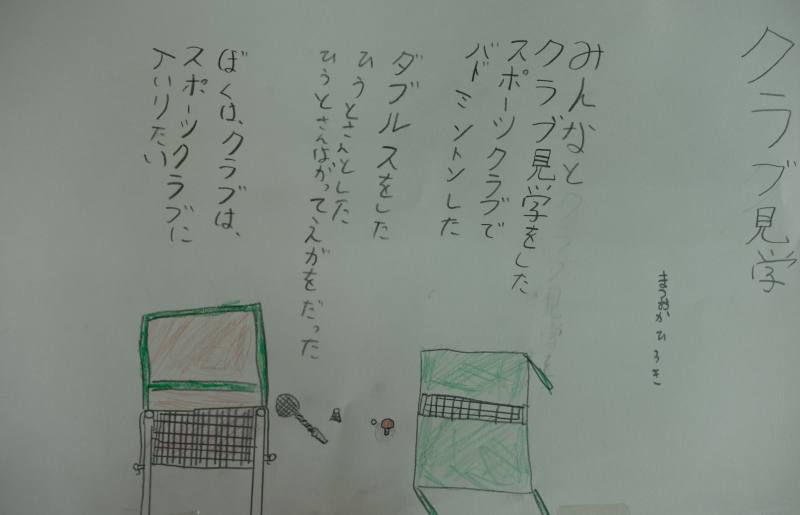 クラブ見学
まつおか ひろき
みんなと
クラブ見学をした
スポーツクラブで
バドミントンした
ダブルスをした
ひうとさんとした
ひうとさんはがってえがをだった
ぼくは、クラブは、
スポーツクラブに
入いりたい